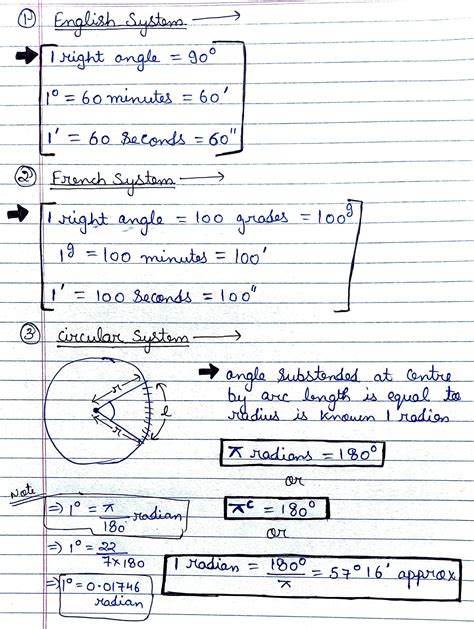 ① English System →
1 right angle = 90°
1° = 60 minutes = 60'
1' = 60 seconds = 60"
② French System →
1 right angle = 100 grades = 100ᵍ
1ᵍ = 100 minutes = 100'
1' = 100 seconds = 100"
③ Circular System →
angle substended at centre
by arc length is equal to
radius is known 1 radian
r
r
l
π radians = 180°
or
πᶜ = 180°
or
1 radian = 180°/π = 57° 16' approx
Note
⇒ 1° = π/180 radian
⇒ 1° = 22/7×180
⇒ 1° = 0.01746
radian